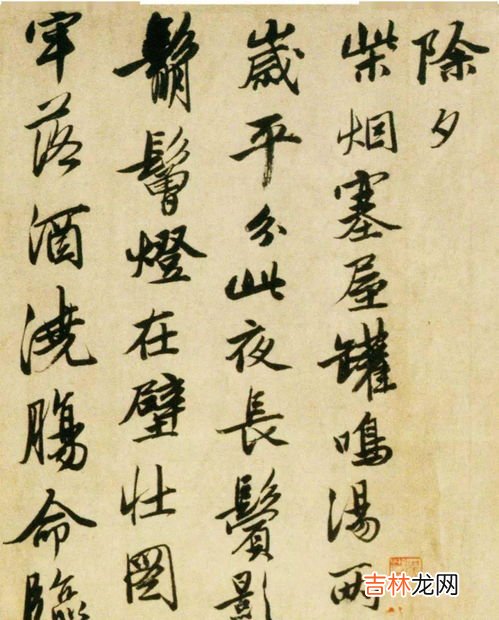 除夕
柴烟塞屋罐鳴湯两
歲平分此夜長鬢影
鬅鬙燈在壁壮圖
牢落酒澆腸命臨
吉林龙网